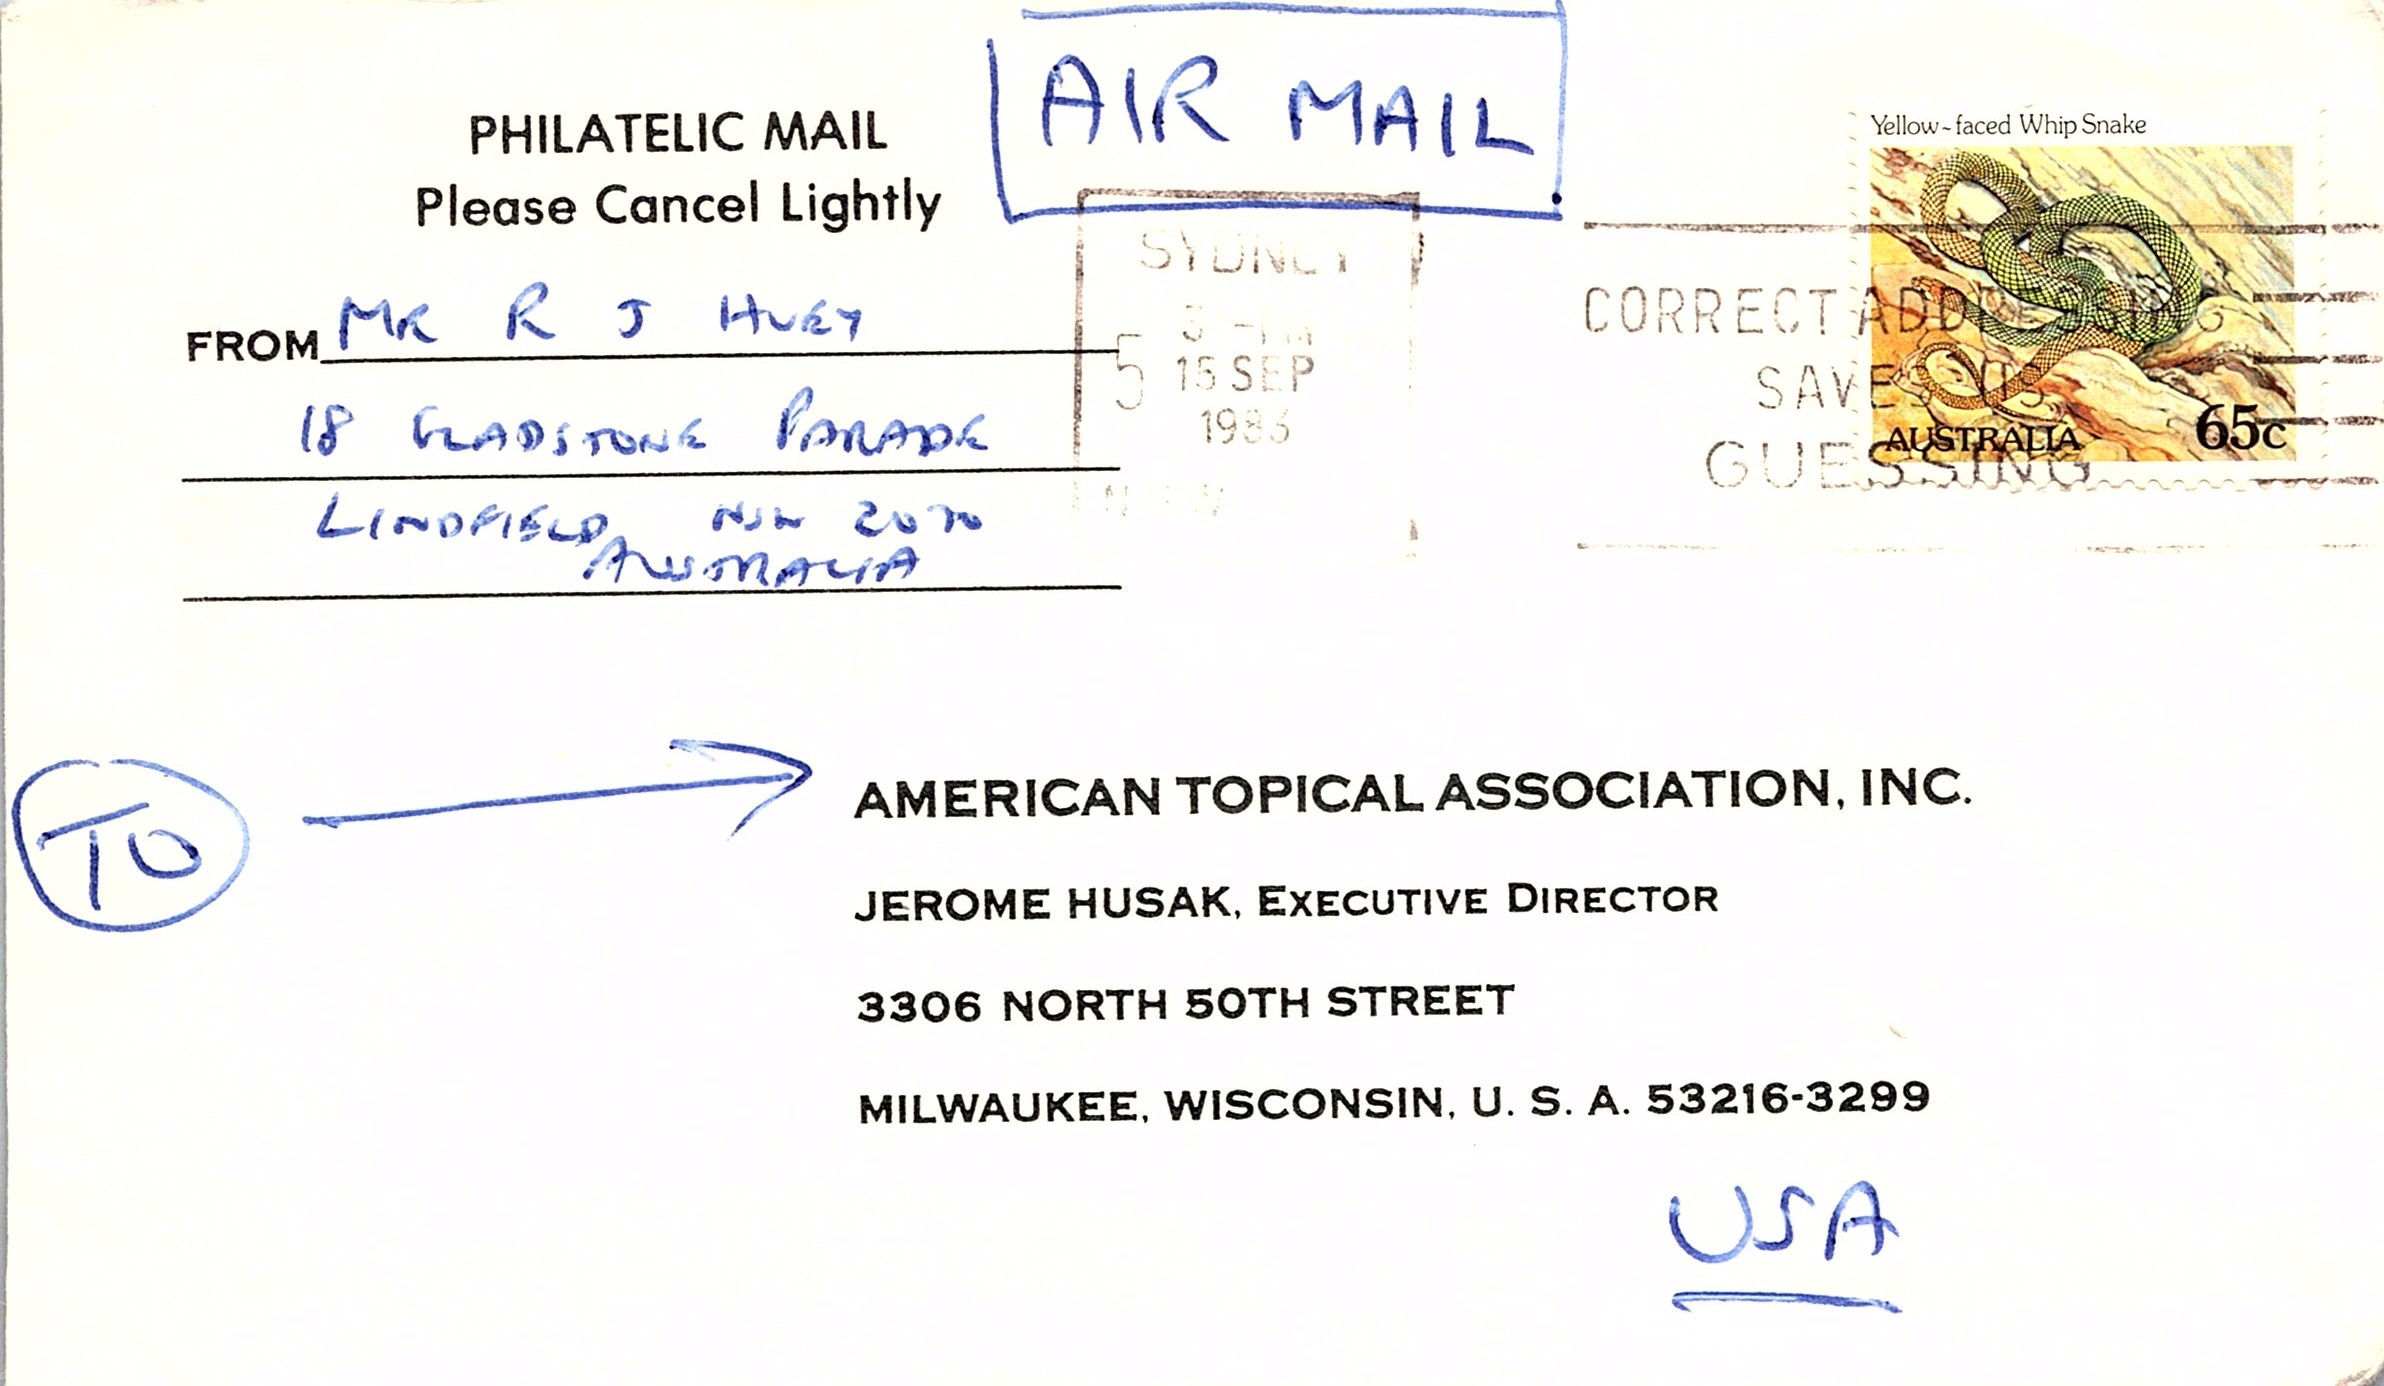 AIR MAIL
PHILATELIC MAIL
Please Cancel Lightly
Yellow-faced Whip Snake
AUSTRALIA 65c
SYDNEY
3 - PM
5 15 SEP
1983
CORRECT ADDRESSING
SAVES US
GUESSING
FROM MR R J HUEY
18 GLADSTONE PARADE
LINDFIELD NSW 2070
AUSTRALIA
TO
AMERICAN TOPICAL ASSOCIATION, INC.
JEROME HUSAK, EXECUTIVE DIRECTOR
3306 NORTH 50TH STREET
MILWAUKEE, WISCONSIN, U. S. A. 53216-3299
USA